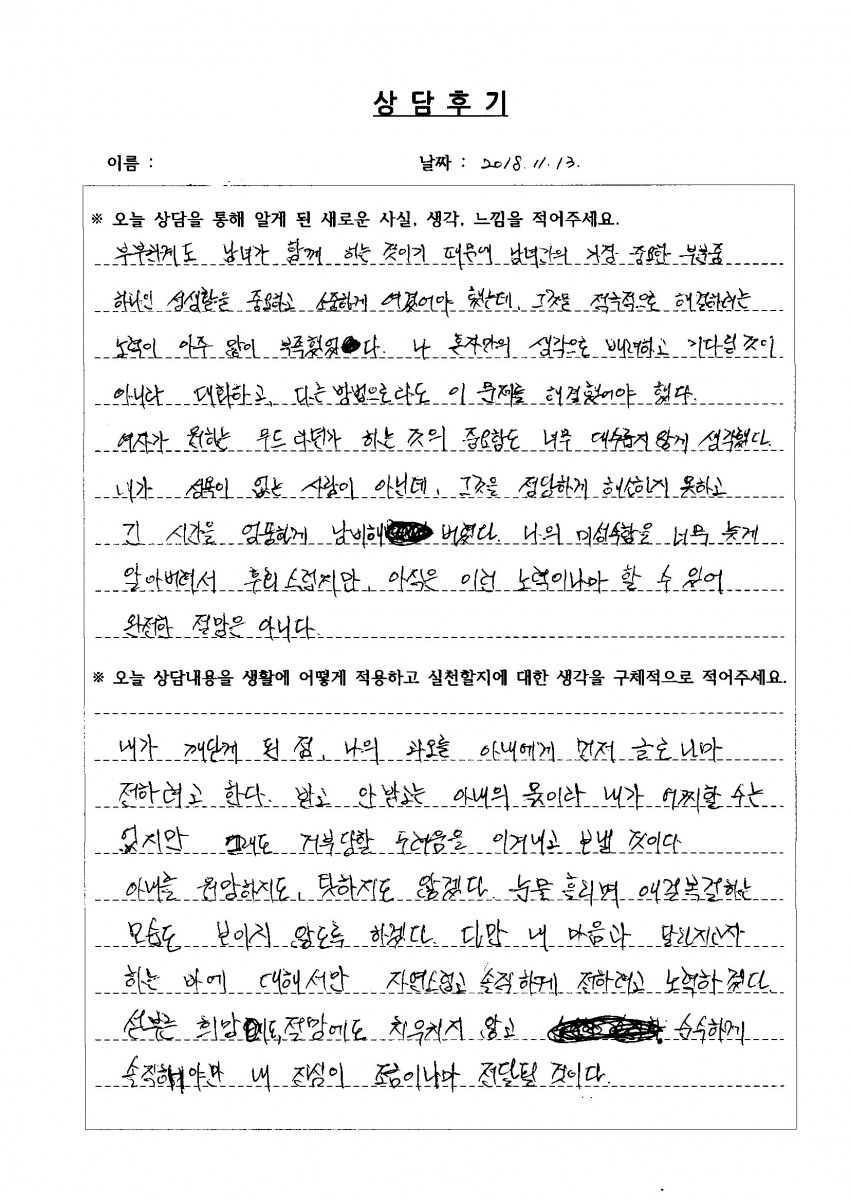 상 담 후 기
이름 :
날짜 : 2018. 11. 13.
※ 오늘 상담을 통해 알게 된 새로운 사실, 생각, 느낌을 적어주세요.
부부관계도 남녀가 함께 하는 것이기 때문에 남녀간의 가장 중요한 부분중
하나인 성생활을 중요하고 소중하게 여겼어야 했는데, 그것을 적극적으로 해결하려는
노력이 아주 많이 부족했었다. 나 혼자만의 생각으로 배려하고 기다릴 것이
아니라 대화하고, 다른 방법으로라도 이 문제를 해결했어야 했다.
여자가 원하는 무드라던가 하는 것의 중요함도 너무 대수롭지 않게 생각했다.
내가 성욕이 없는 사람이 아닌데, 그것을 정당하게 해소하지 못하고
긴 시간을 엄풍하게 낭비해 버렸다. 나의 미성숙함을 너무 늦게
알아버려서 후회스럽지만, 아직은 이런 노력이나마 할 수 있어
완전한 절망은 아니다.
※ 오늘 상담내용을 생활에 어떻게 적용하고 실천할지에 대한 생각을 구체적으로 적어주세요.
내가 깨닫게 된 점, 나의 과오를 아내에게 먼저 글로나마
전하려고 한다. 받고 안받고는 아내의 몫이라 내가 어찌할 수는
없지만 그래도 거부당할 두려움을 이겨내고 보낼 것이다
아내를 원망하지도, 탓하지도 않겠다. 눈물 흘리며 애걸복걸하는
모습도 보이지 않도록 하겠다. 다만 내 마음과 달라지고자
하는 바에 대해서만 자연스럽고 솔직하게 전하려고 노력하겠다.
섣부른 희망에도, 절망에도 치우치지 않고 순수하게
솔직해야만 내 진심이 조금이나마 전달될 것이다.